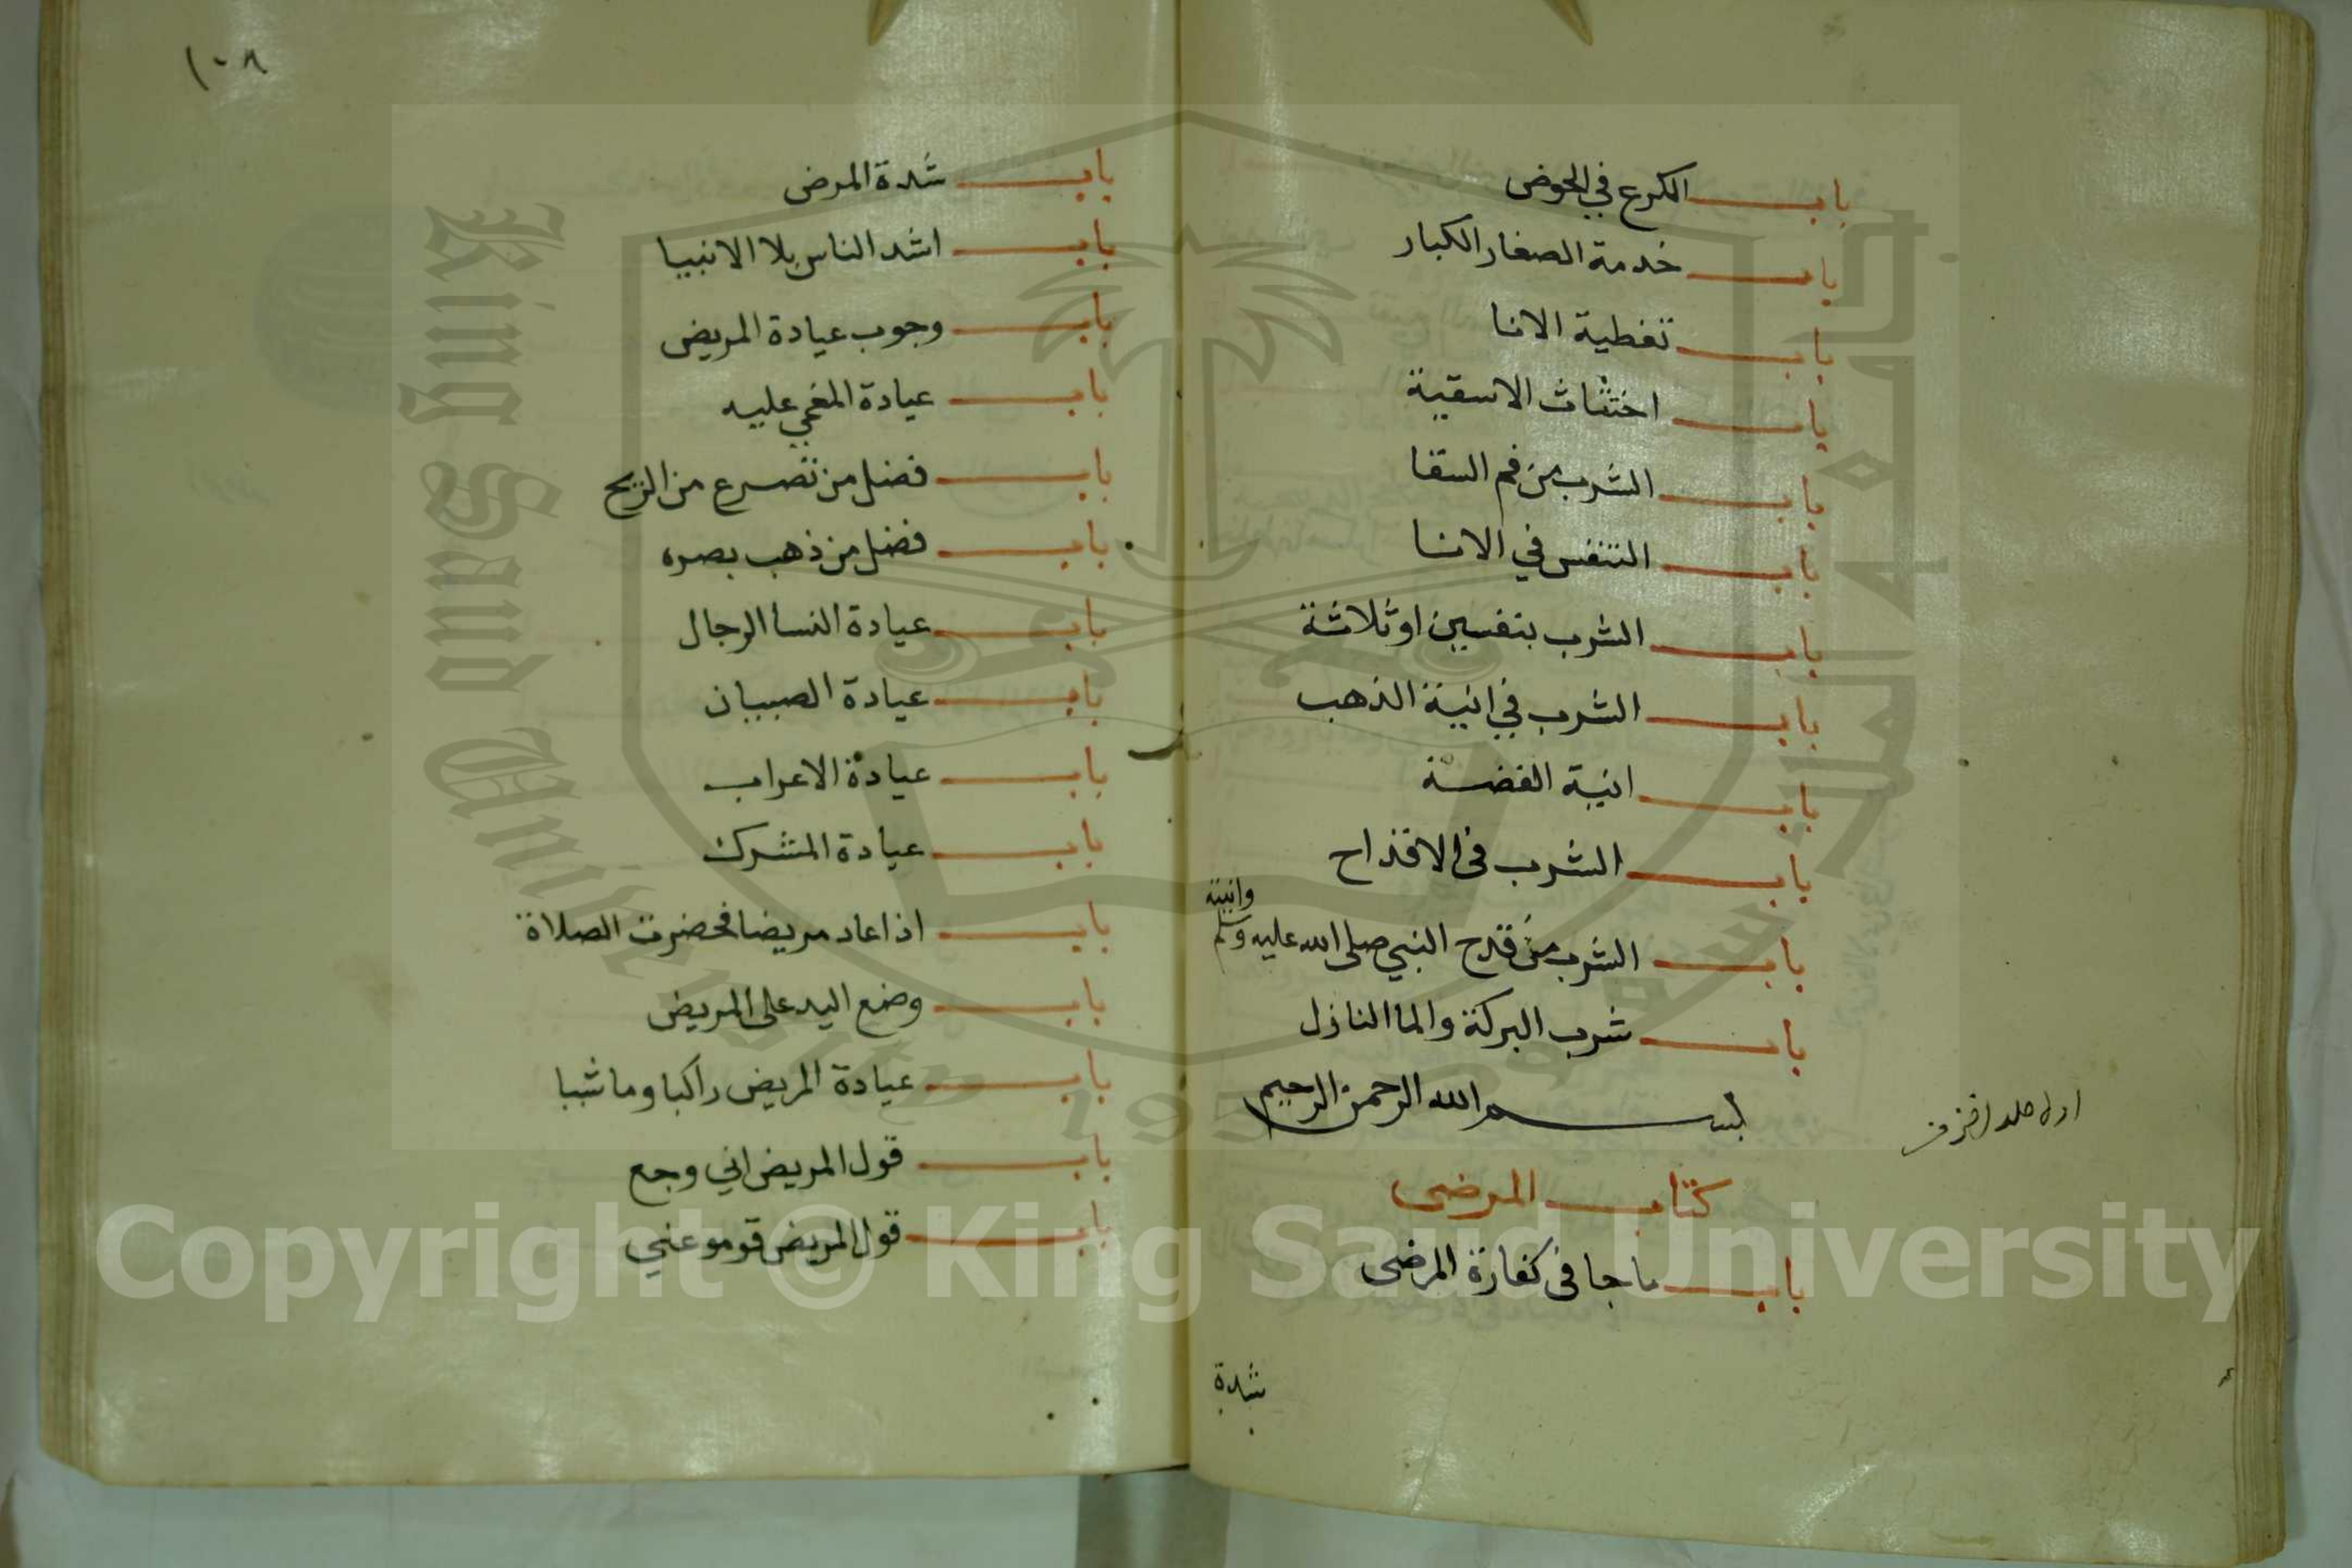 باب الكرع في الحوض
باب خدمة الصغار الكبار
باب تغطية الانا
باب اختناث الاسقية
باب الشرب من فم السقا
باب التنفس في الانا
باب الشرب بنفسين او ثلاثة
باب الشرب في انية الذهب
باب انية الفضة
باب الشرب في الاقداح
باب الشرب من قدح النبي صلى الله عليه وسلم وانيته
باب شرب البركة والما النازل
بسم الله الرحمن الرحيم
كتاب المرضى
باب ما جا في كفارة المرضى
شدة
١٠٨
باب شدة المرض
باب اشد الناس بلا الانبيا
باب وجوب عيادة المريض
باب عيادة المغمى عليه
باب فضل من تصرع من الريح
باب فضل من ذهب بصره
باب عيادة النسا الرجال
باب عيادة الصبيان
باب عيادة الاعراب
باب عيادة المشرك
باب اذا عاد مريضا فحضرت الصلاة
باب وضع اليد على المريض
باب عيادة المريض راكبا وماشيا
باب قول المريض اني وجع
باب قول المريض قومو عني
King Saud University
1957
Copyright © King Saud University